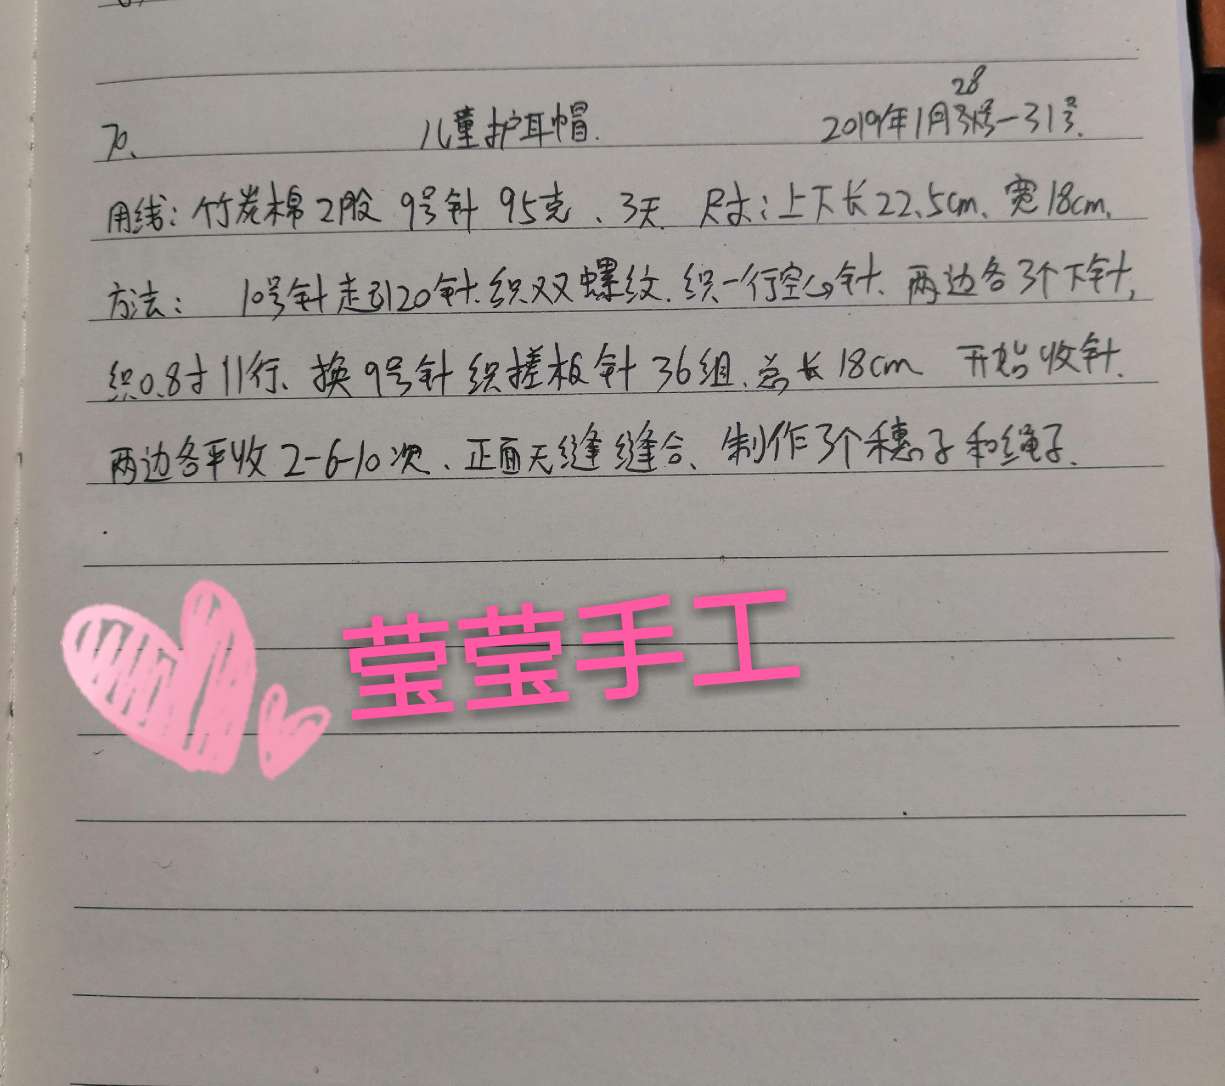 70、 儿童护耳帽. 2019年1月28号-31号.
用线: 竹炭棉2股 9号针 95克、3天. 尺寸: 上下长22.5cm、宽18cm.
方法: 10号针起120针.织双螺纹.织一行空心针. 两边各3个下针,
织0.8寸11行、换9号针织搓板针36组.总长18cm 开始收针.
两边各平收2-6-10次、正面无缝缝合、制作3个穗子和绳子.
莹莹手工